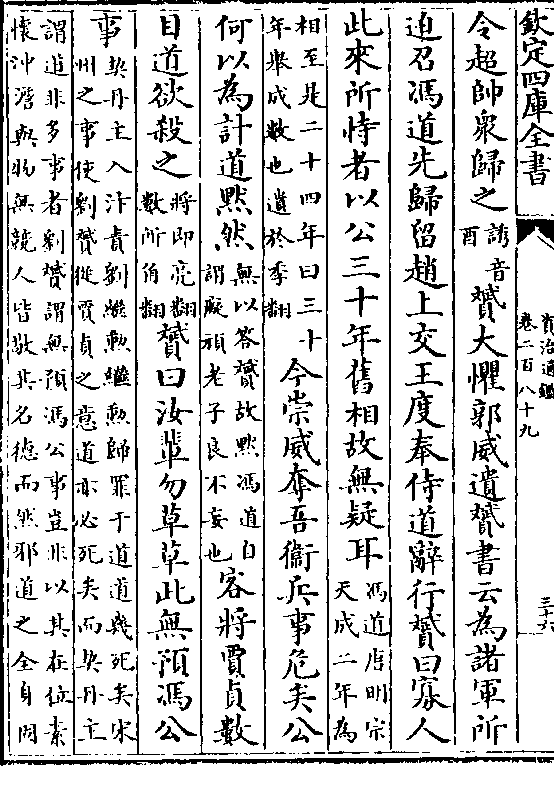 欽定四庫全書
資治通鑑
卷二百八十九
三十六
令超帥衆歸之誘音酉贇大懼郭威遺贇書云為諸軍所
迫召馮道先歸留趙上交王度奉侍道辭行贇曰寡人
此來所恃者以公三十年舊相故無疑耳馮道唐明宗天成二年為
相至是二十四年曰三十年舉成數也遺於季翻今崇威奪吾衞兵事危矣公
何以為計道默然無以答贇故默馮道自謂癡頑老子良不妄也客將賈貞數
目道欲殺之將即亮翻數所角翻贇曰汝輩勿草草此無預馮公
事契丹主入汴責劉繼勲繼勲歸罪于道道幾死矣宋州之事使劉贇從賈貞之意道亦必死矣而契丹主
謂道非多事者劉贇謂無預馮公事豈非以其在位素懷沖澹與物無競人皆敬其名德而然邪道之全身固